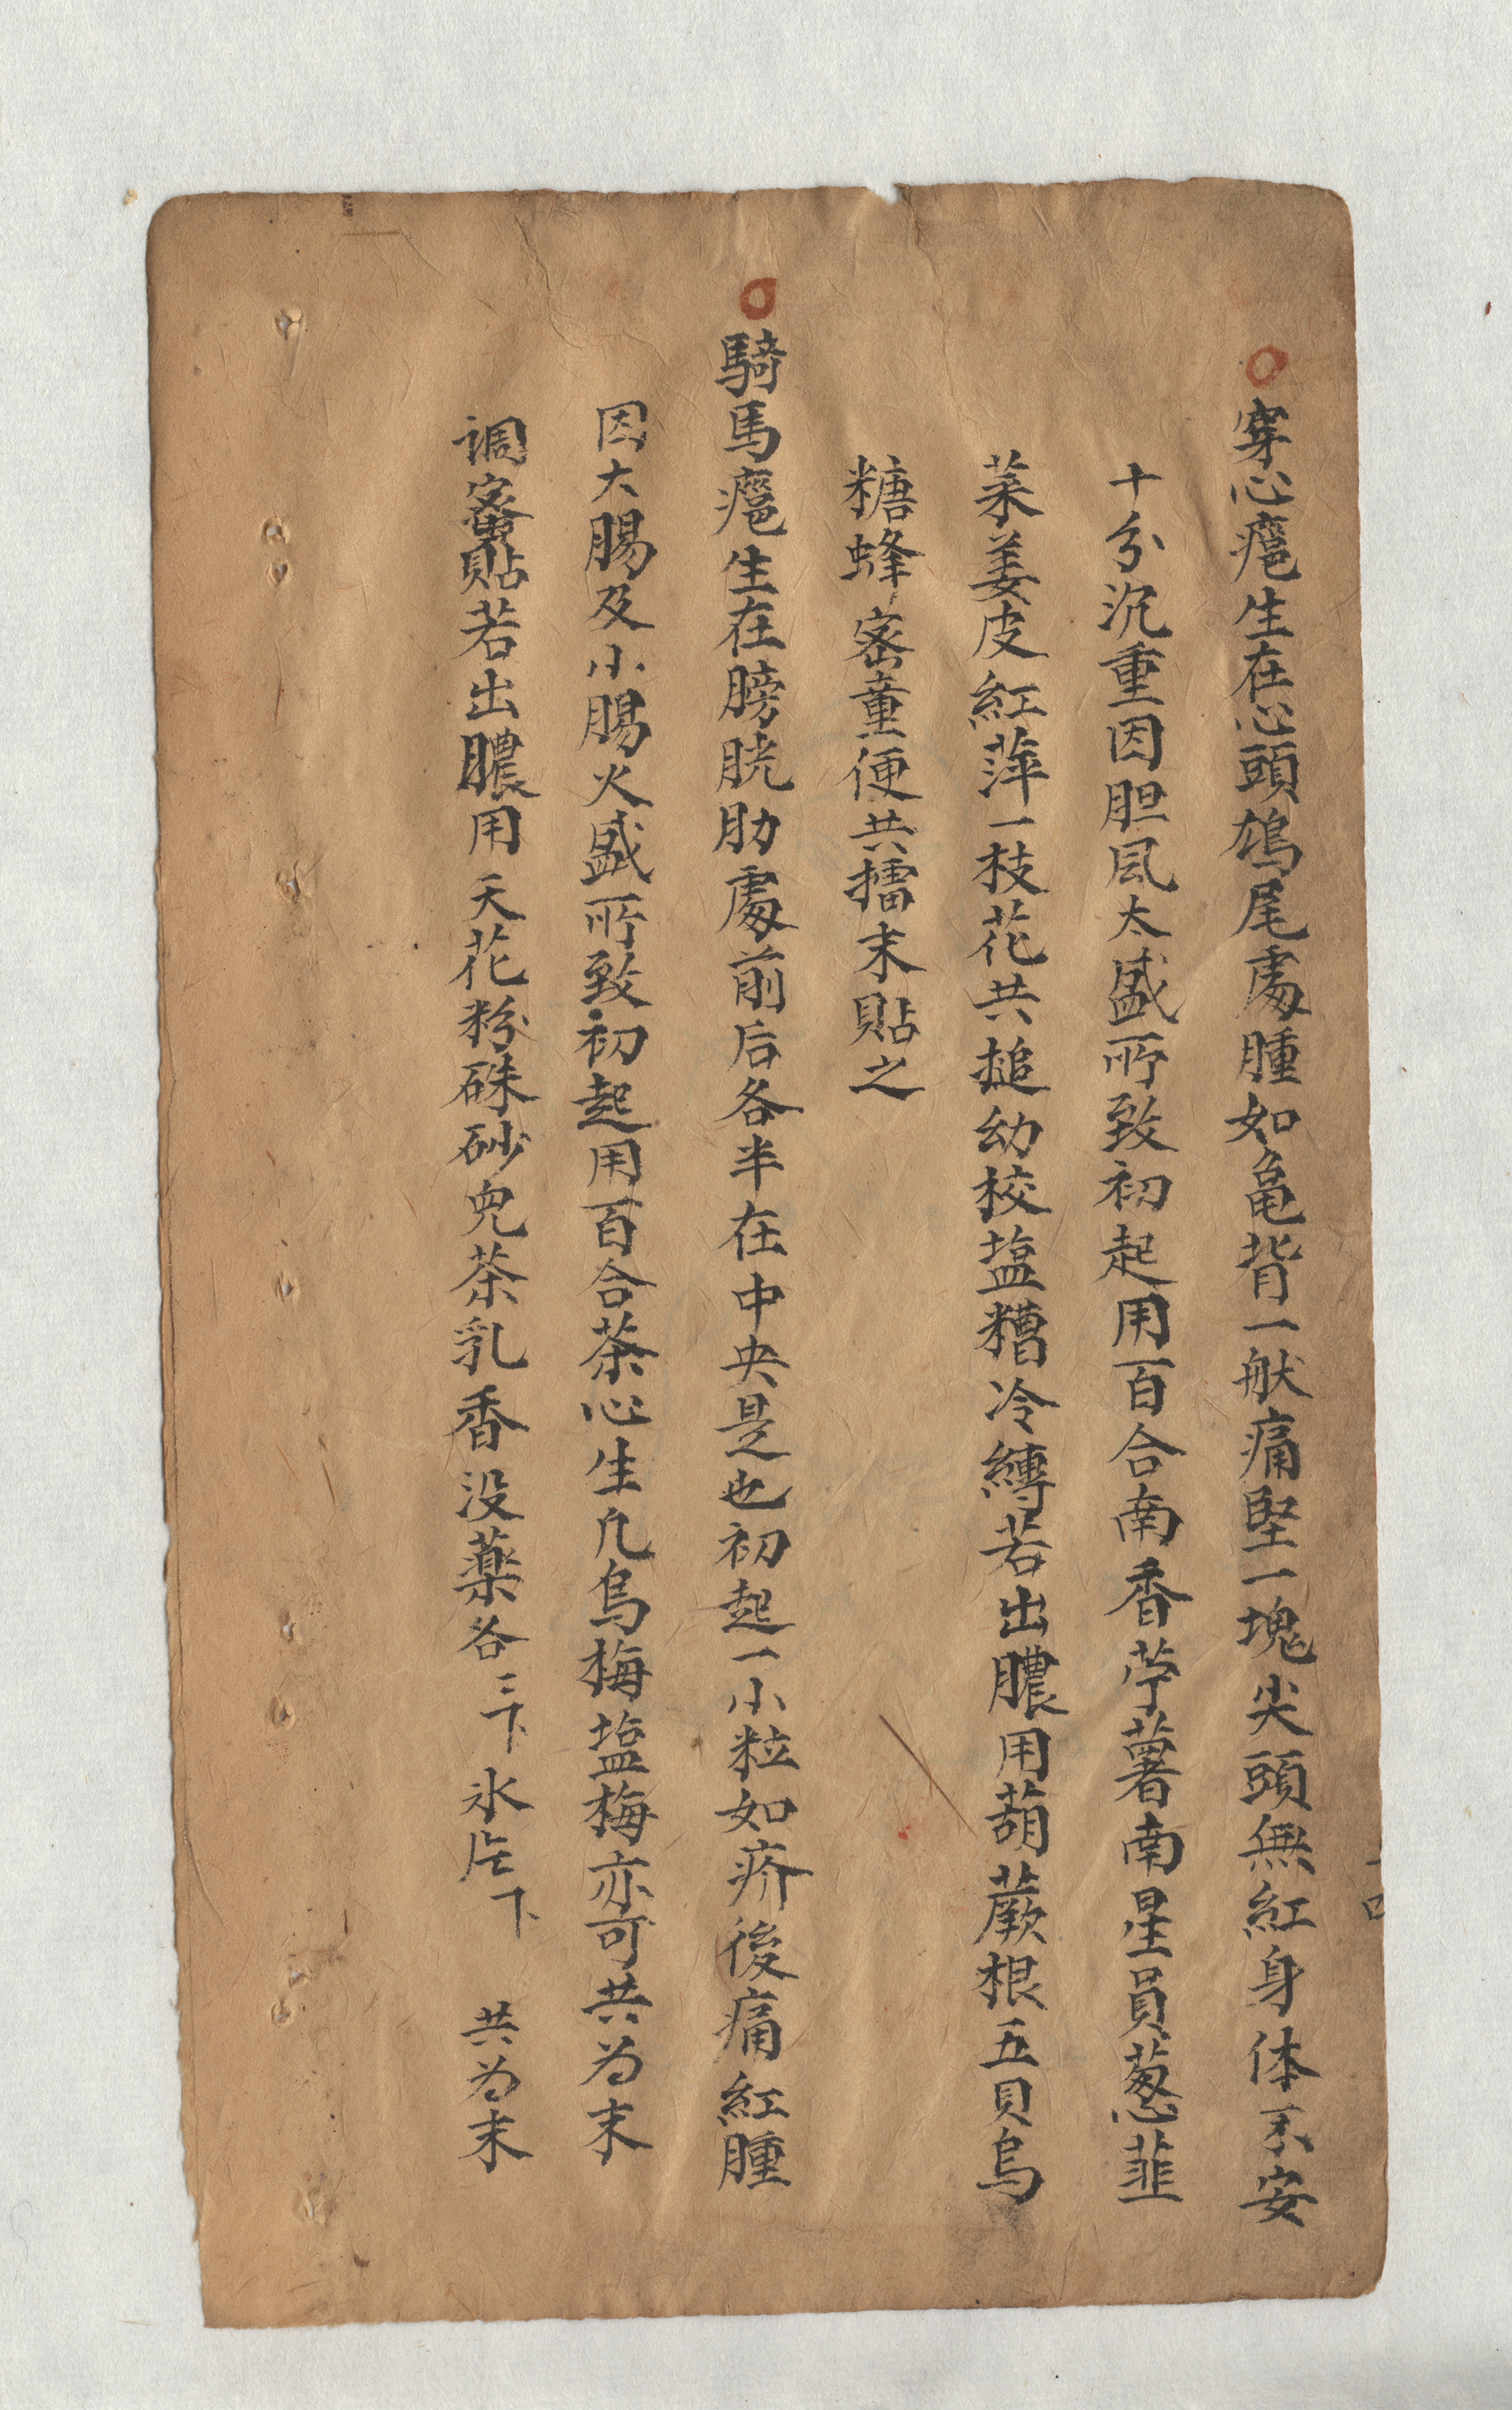 穿心癰生在心頭鴆尾處腫如亀背一般痛堅一塊尖頭無紅身体不安
十分沉重因胆風太盛所致初起用百合南香苧薯南星員葱韮
菜姜皮紅萍一枝花共搥幼校塩糟冷縛若出膿用葫蕨根五貝烏
糖蜂密童便共擂末貼之
騎馬癰生在膀胱肋處前后各半在中央是也初起一小粒如疥後痛紅腫
因大腸及小腸火盛所致初起用百合茶心生凡烏梅塩梅亦可共为末
调蜜貼若出膿用天花粉硃砂兒茶乳香没藥各三下氷片下 共为末